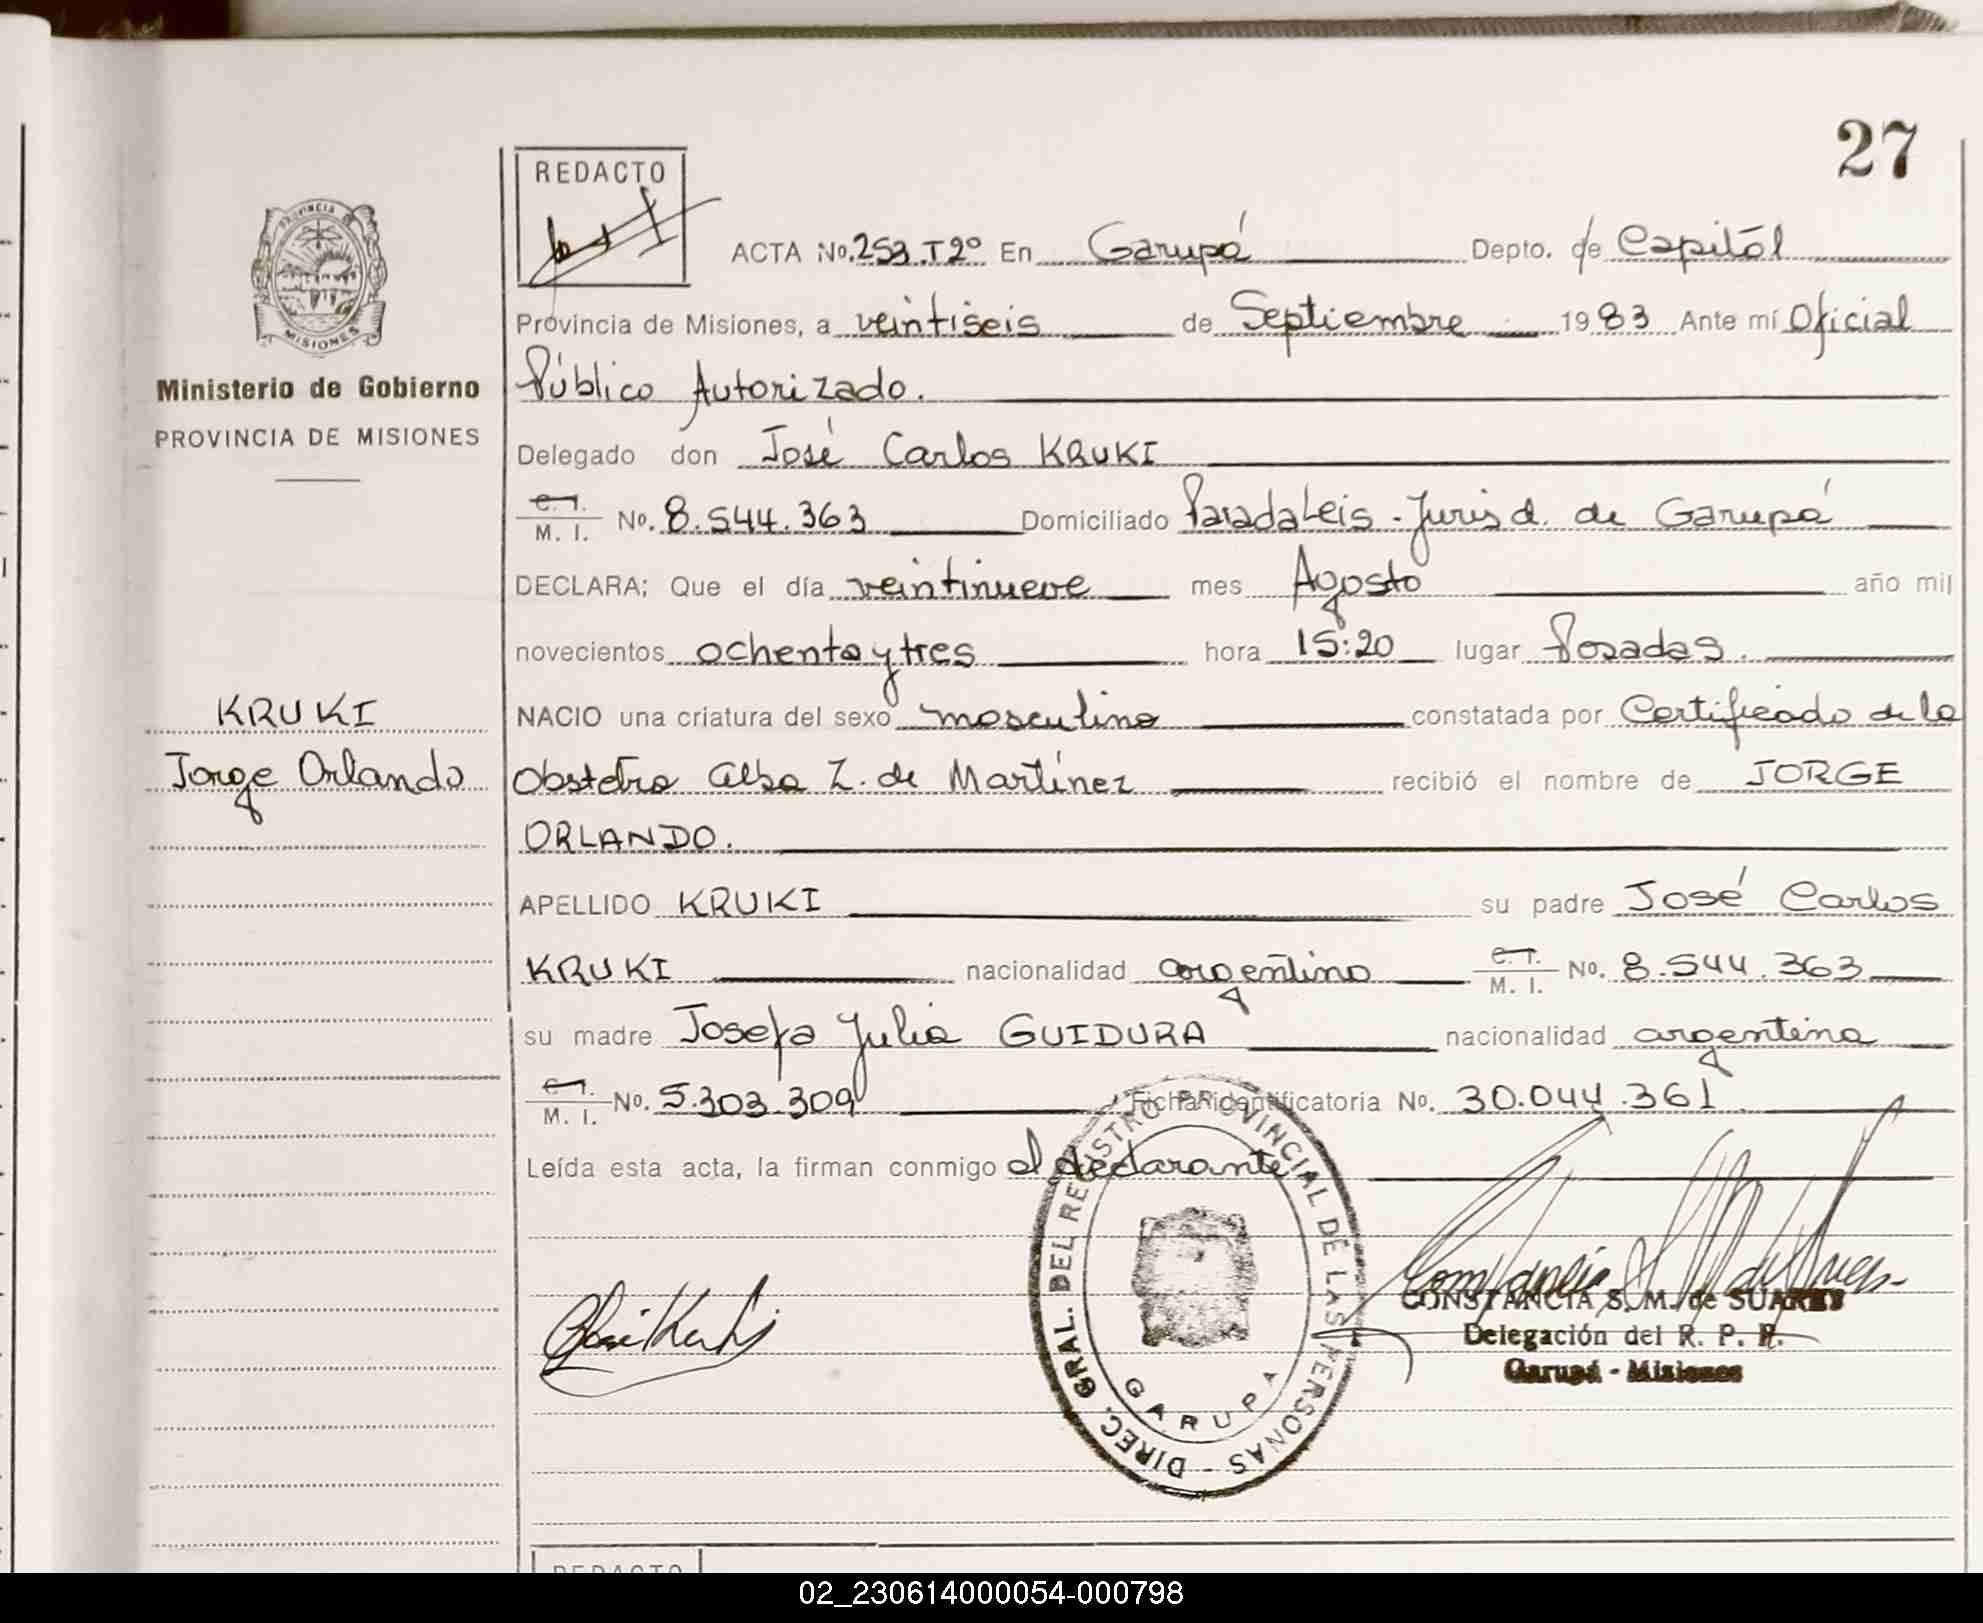 27
REDACTO
PROVINCIA
MISIONES
Ministerio de Gobierno
PROVINCIA DE MISIONES
KRUKI
Jorge Orlando
ACTA No. 253.T2º En Garupá Depto. de Capital
Provincia de Misiones, a veintiseis de Septiembre 1983 Ante mí Oficial
Público Autorizado.
Delegado don José Carlos KRUKI
C. I. M. I. No. 8.544.363 Domiciliado Parada Leis - Jurisd. de Garupá
DECLARA; Que el día veintinueve mes Agosto año mil
novecientos ochenta y tres hora 15:20 lugar Posadas.
NACIO una criatura del sexo masculino constatada por Certificado de la
Obstetra Alba Z. de Martínez recibió el nombre de JORGE
ORLANDO.
APELLIDO KRUKI su padre José Carlos
KRUKI nacionalidad argentino C. I. M. I. No. 8.544.363
su madre Josefa Julia GUIDURA nacionalidad argentina
C. I. M. I. No. 5.303.309 Ficha identificatoria No. 30.044.361
Leída esta acta, la firman conmigo el declarante
DIREC. GRAL. DEL REGISTRO PROVINCIAL DE LAS PERSONAS -
GARUPA
CONSTANCIA S. M. de SUAREZ
Delegación del R. P. P.
Garupá - Misiones
REDACTO
02_230614000054-000798